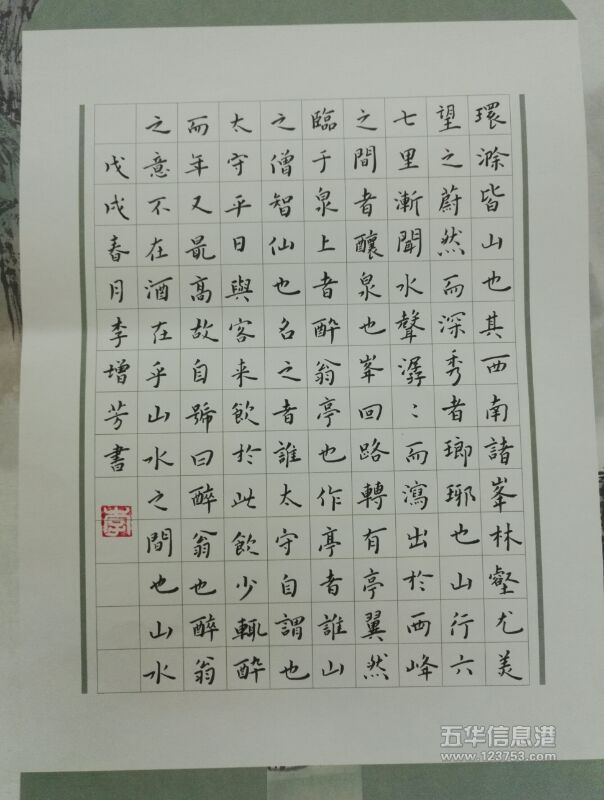 環滁皆山也其西南諸峯林壑尤美
望之蔚然而深秀者瑯琊也山行六
七里漸聞水聲潺〻而瀉出於两峰
之間者釀泉也峯回路轉有亭翼然
臨于泉上者醉翁亭也作亭者誰山
之僧智仙也名之者誰太守自謂也
太守平日與客来飲於此飲少輒醉
而年又最高故自號曰醉翁也醉翁
之意不在酒在乎山水之間也山水
戊戌春月李增芳書
五华信息港
www.123753.com